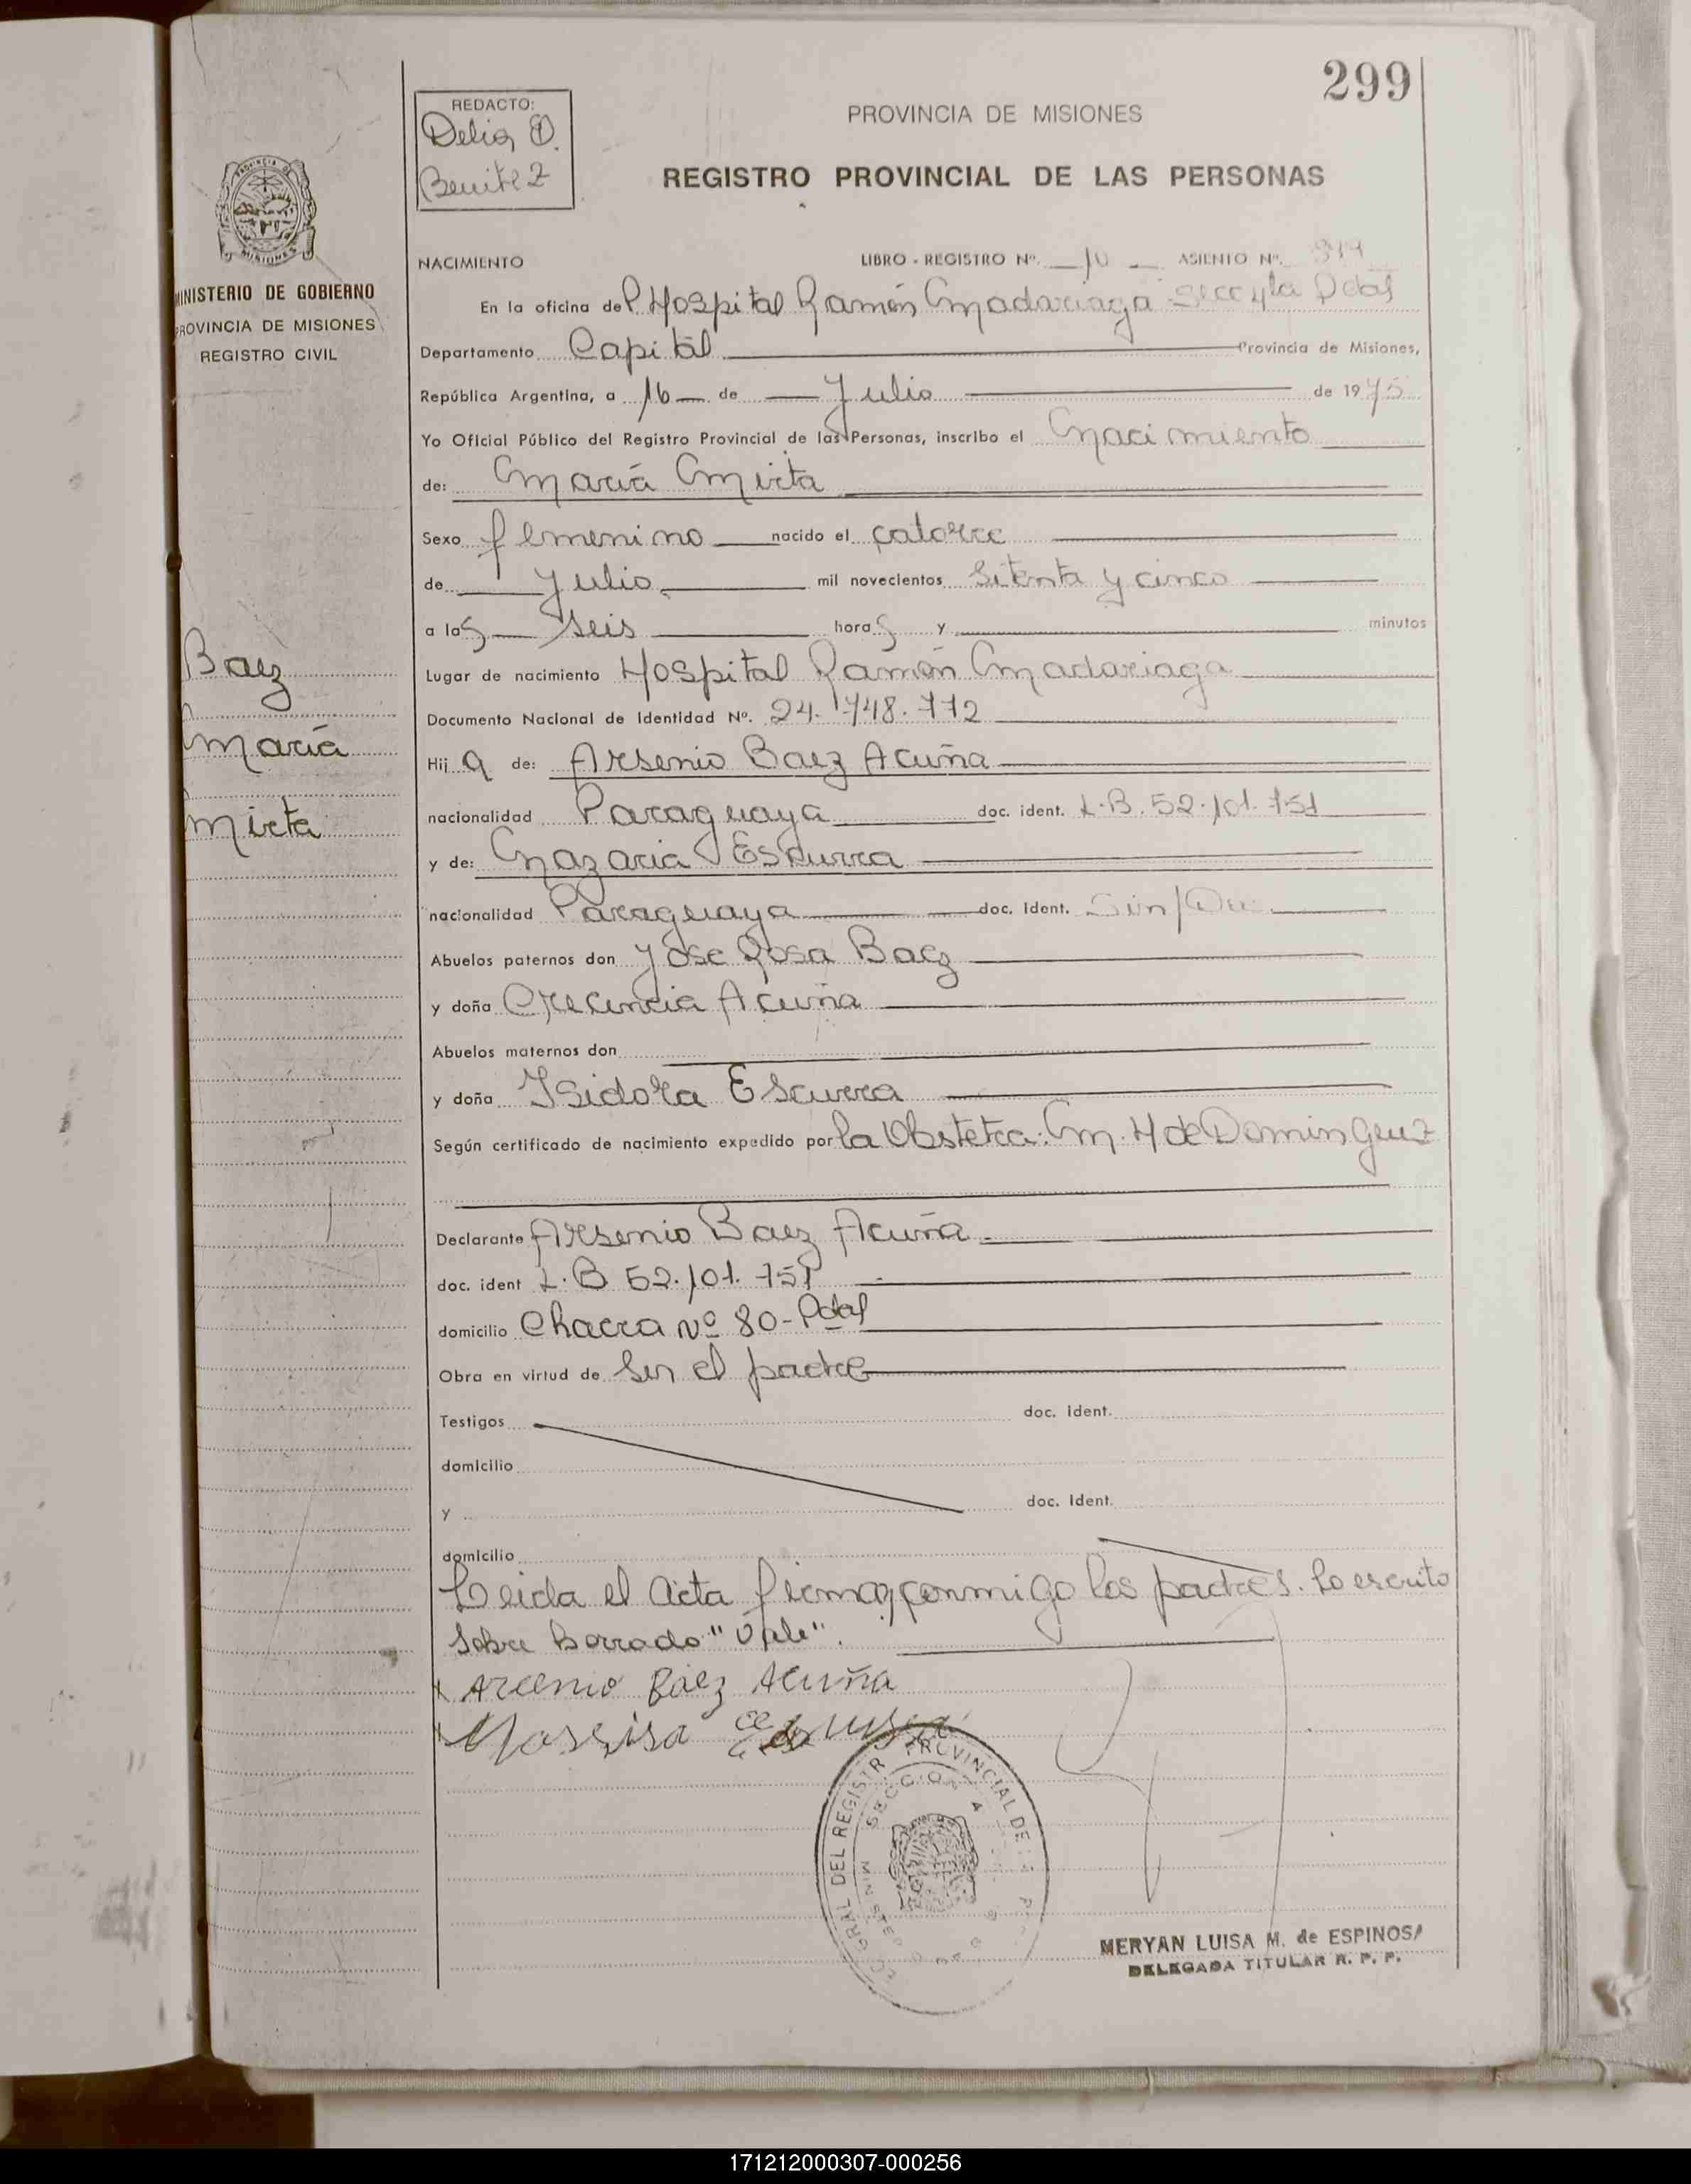 299
REDACTO:
Delia D.
Benitez
PROVINCIA DE MISIONES
REGISTRO PROVINCIAL DE LAS PERSONAS
PROVINCIA DE
MISIONES
MINISTERIO DE GOBIERNO
PROVINCIA DE MISIONES
REGISTRO CIVIL
NACIMIENTO LIBRO - REGISTRO Nº. 10 ASIENTO Nº.
En la oficina de Hospital Ramón Madariaga Secc 4ta Pdas
Departamento Capital Provincia de Misiones,
República Argentina, a 16 de Julio de 1975
Yo Oficial Público del Registro Provincial de las Personas, inscribo el Nacimiento
de: María Mirta
Sexo femenino nacido el catorce
de Julio mil novecientos Setenta y cinco
a las seis horas y minutos
Lugar de nacimiento Hospital Ramón Madariaga
Documento Nacional de Identidad Nº. 24.748.772
Hija de: Arsenio Baez Acuña
nacionalidad Paraguaya doc. ident. L.B. 52.101.751
y de: Nazaria Escurra
nacionalidad Paraguaya doc. Ident. Sin/Doc
Abuelos paternos don José Rosa Baez
y doña Crecencia Acuña
Abuelos maternos don
y doña Isidora Escurra
Según certificado de nacimiento expedido por la Obstetca: M. H de Dominguez
Declarante Arsenio Baez Acuña
doc. ident L.B 52.101.751
domicilio Chacra Nº 80-Pdas
Obra en virtud de Ser el padre
Testigos doc. ident.
domicilio
y doc. Ident.
domicilio
Leida el Acta firman conmigo los padres. Lo escrito
sobre borrado "Vale".
Arcenio Báez Acuña
Baez
María
Mirta
GRAL DEL REGISTR PROVINCIAL DE
SECCION 4
MERYAN LUISA M. de ESPINOSA
DELEGADA TITULAR R. P. P.
171212000307-000256